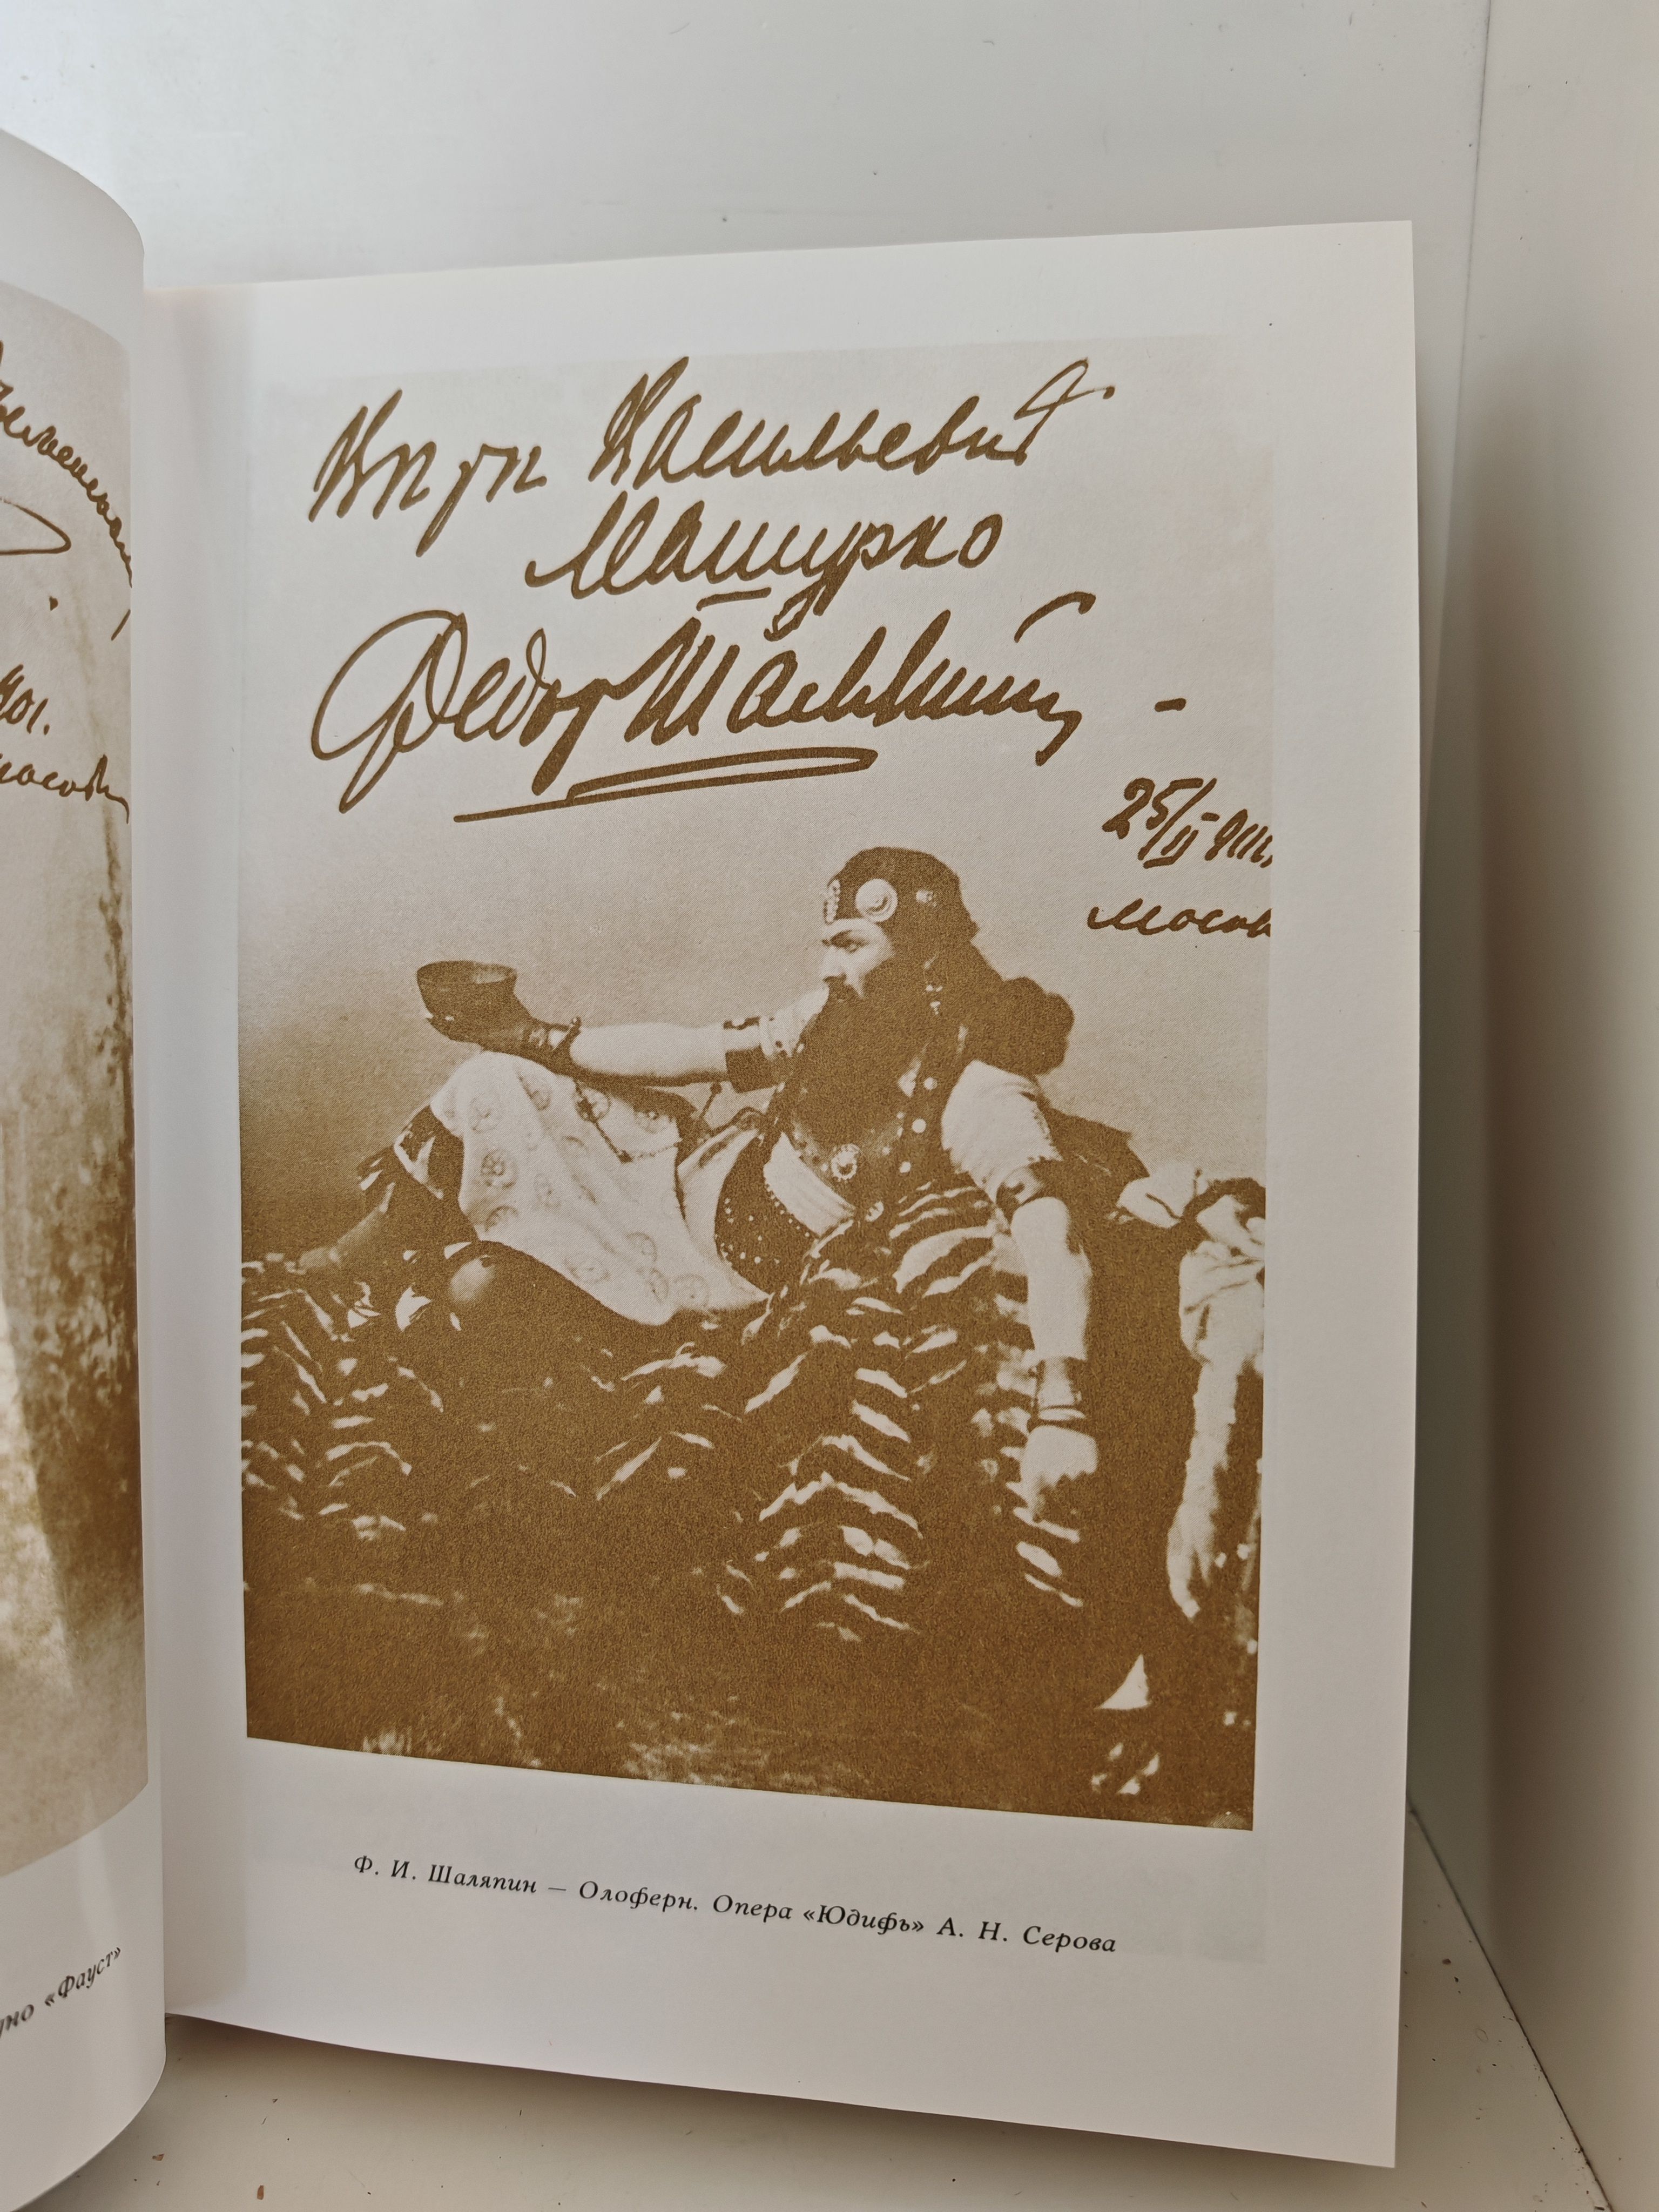 901.
уно «Фауст»
Васильевич
Машурко
Федор Шаляпин —
25/II 911.
Москв
Ф. И. Шаляпин — Олоферн. Опера «Юдифь» А. Н. Серова